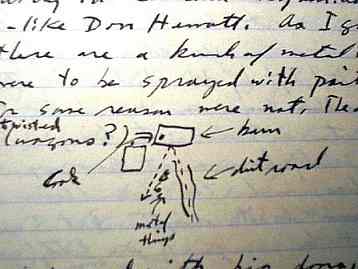 -like Don Hewatt. As I g
there are a bunch of metal
were to be sprayed with pai
for some reason were not. The
twisted
(wagons?)
barn
dirt road
metal
things